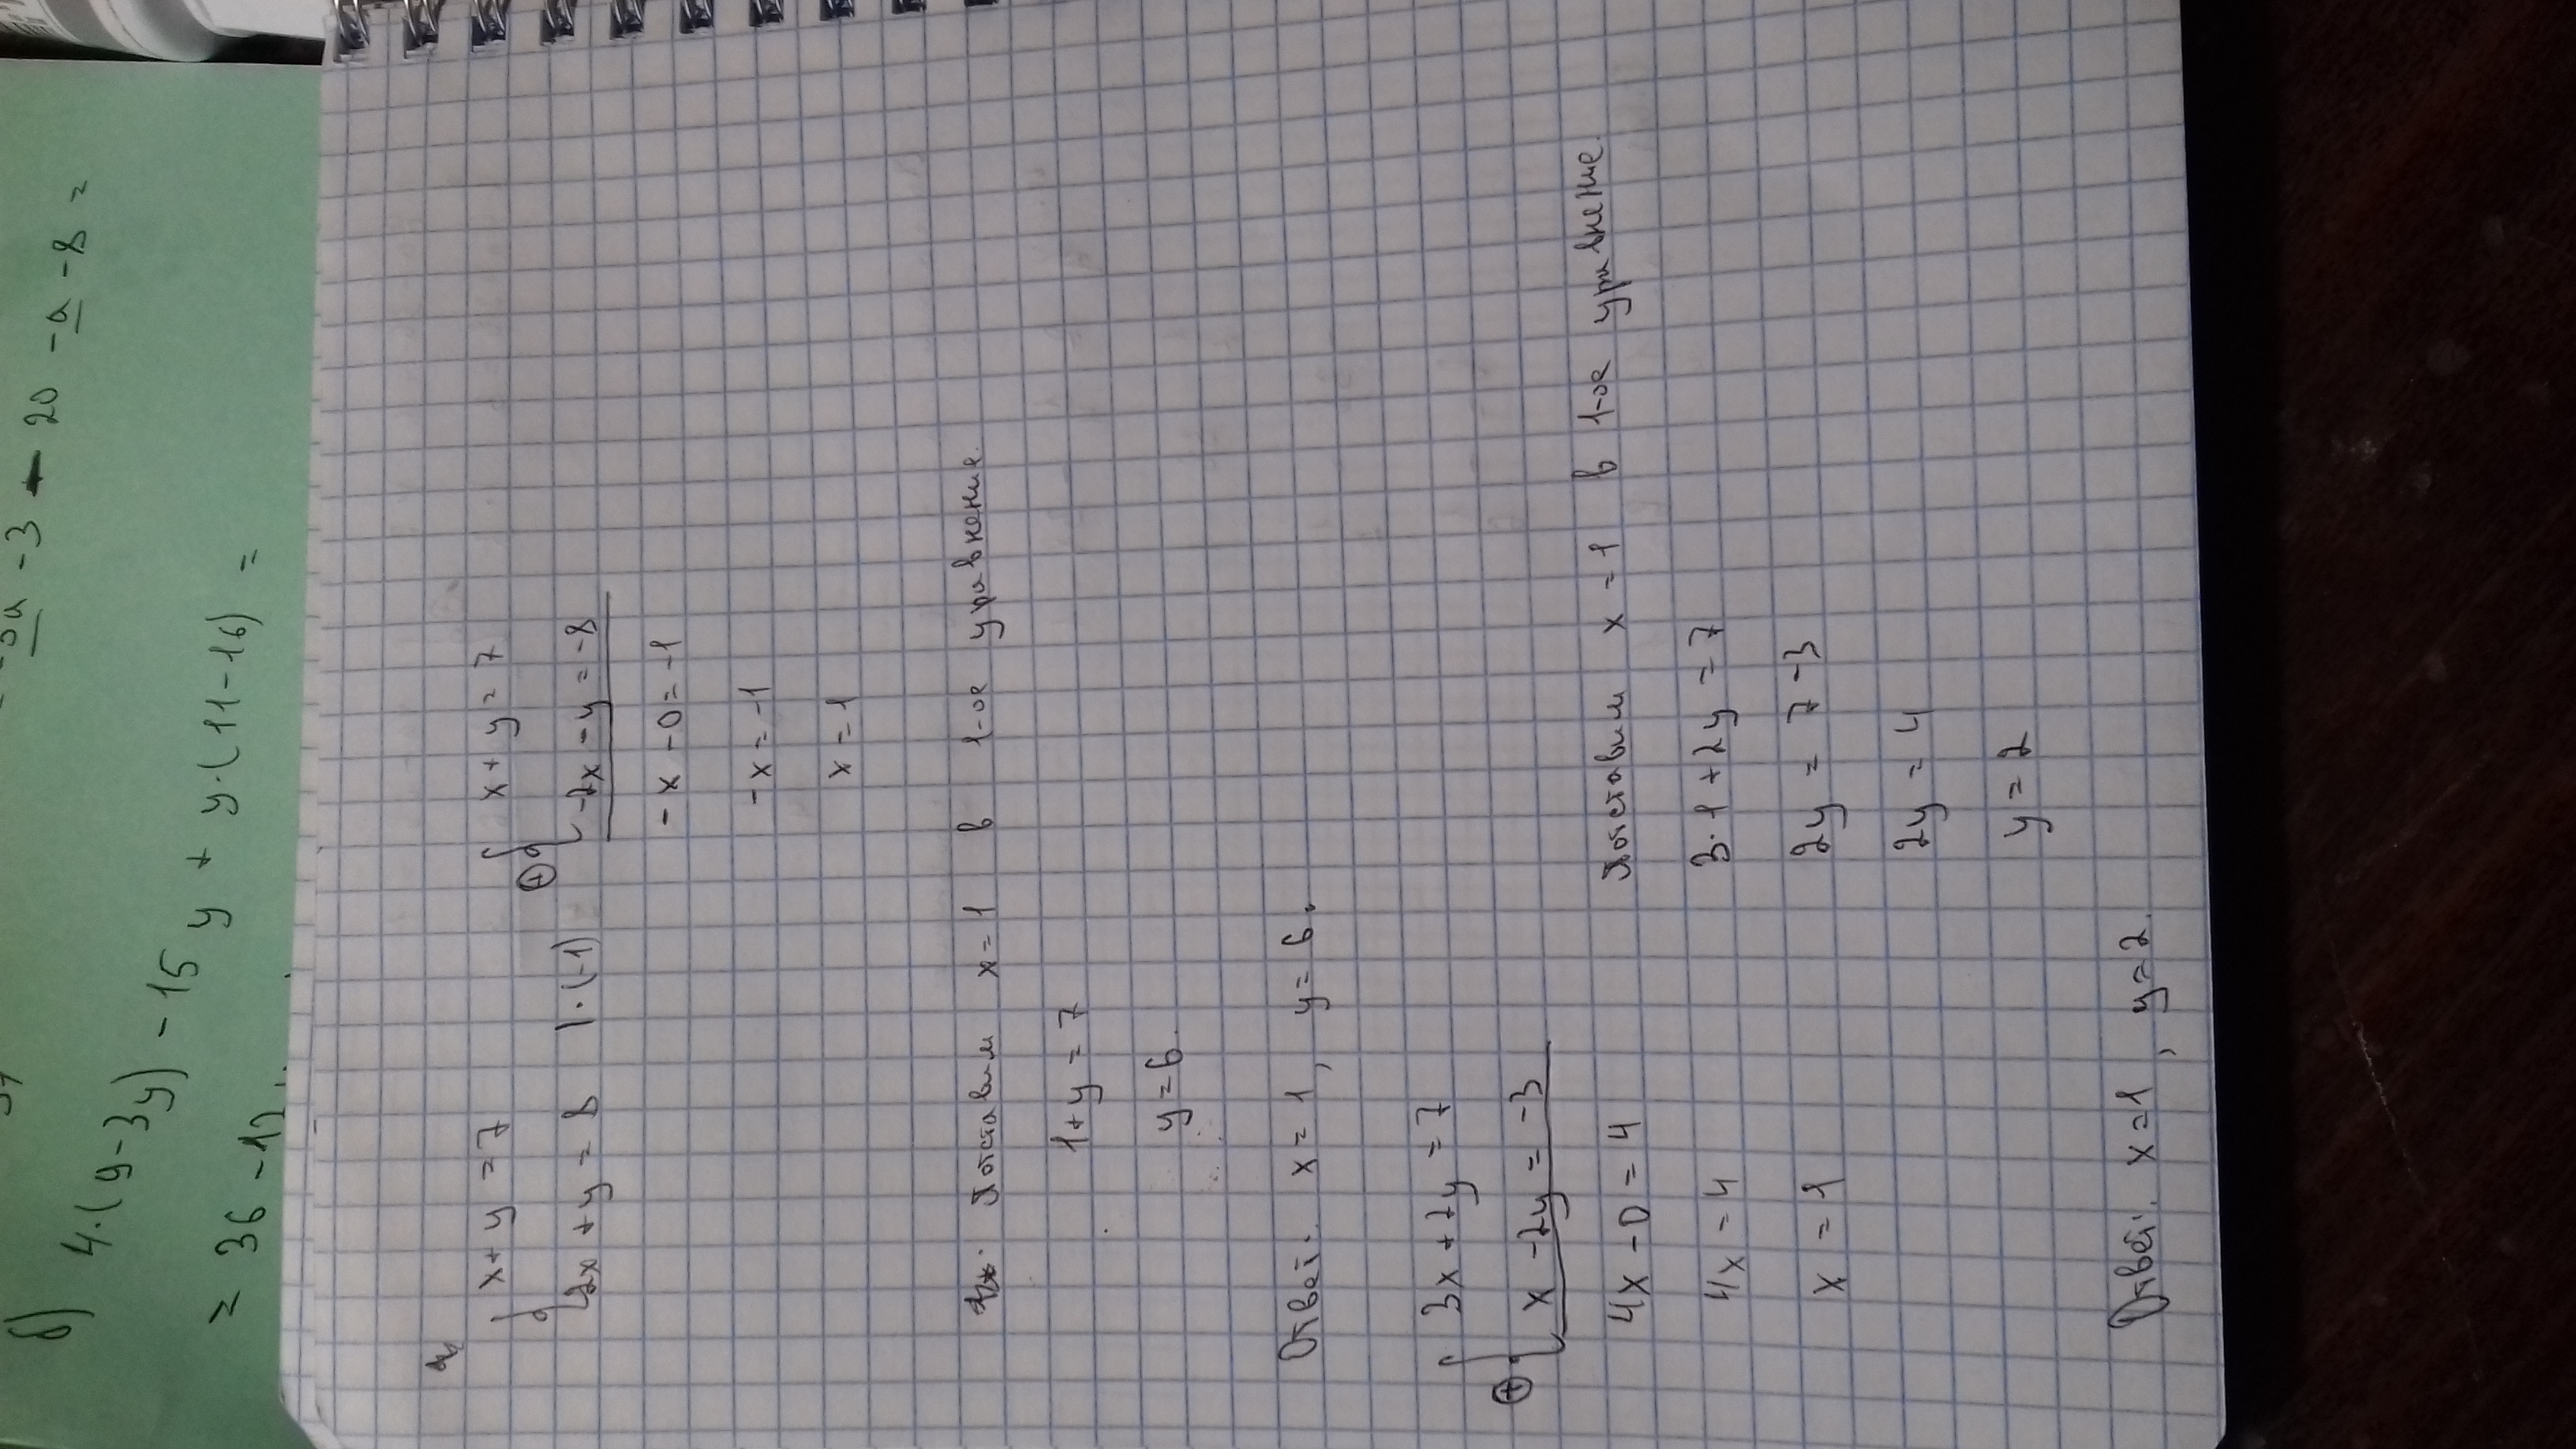 -3 - 20 - a - 8 =
б) 4·(y-3y) - 15y + y·(11-16) =
= 36 - 12
{ x + y = 7
{ 2x + y = 8 | ·(-1)
⊕ { x + y = 7
{ -2x - y = -8
-x - 0 = -1
-x = -1
x = 1
Потставим x = 1 в 1-ое уравнение.
1 + y = 7
y = 6.
Ответ: x = 1, y = 6.
⊕ { 3x + 2y = 7
{ x - 2y = -3
4x - 0 = 4
4x = 4
x = 1
Потставим x = 1 в 1-ое уравнение.
3·1 + 2y = 7
2y = 7 - 3
2y = 4
y = 2
Ответ: x = 1, y = 2.